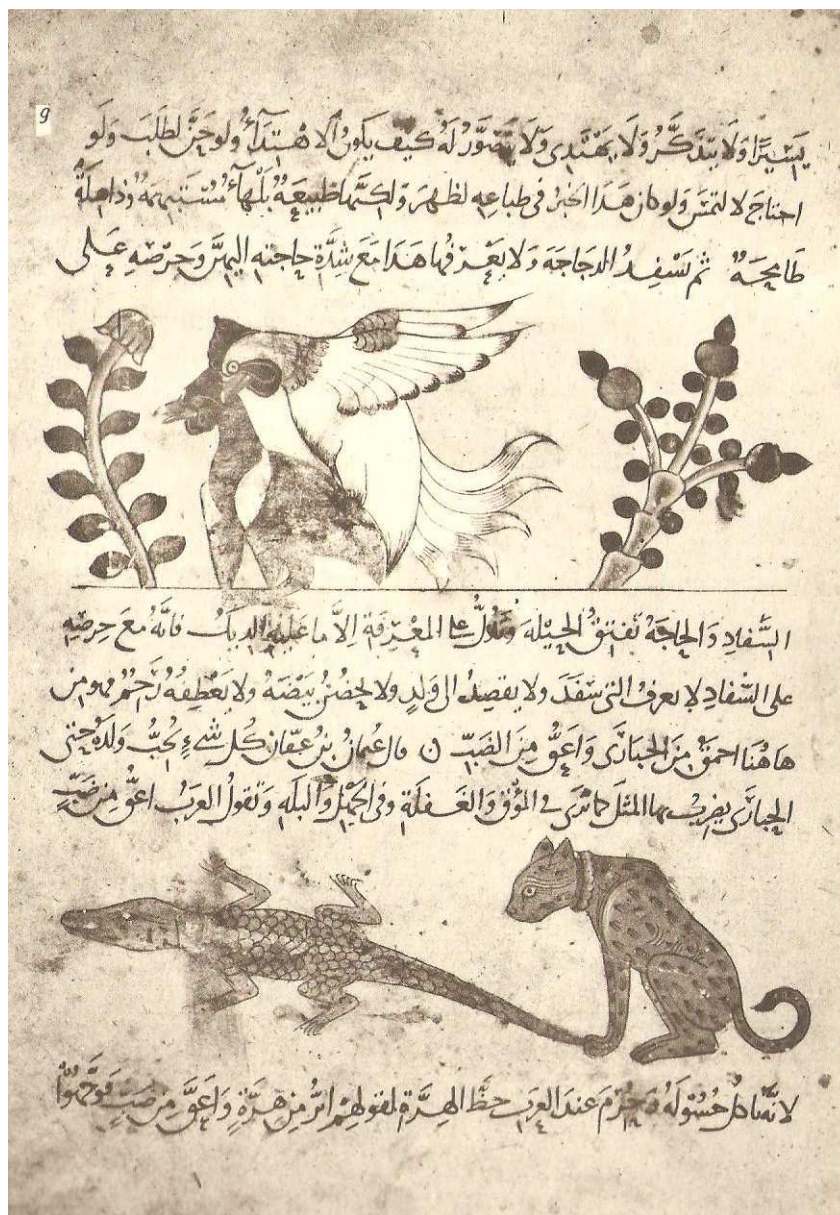 9
يَسِيْرًا وَلَا يَتَذَكَّرُ وَلَا يَهْتَدِى وَلَا يَتَصَوَّرُ لَهُ كَيْفَ يَكُونُ الاهْتِدَآءُ ولو حَنَّ لطَلَبَ وَلَو
احتاجَ لالتمسَ ولو كان هَذَا الخبرُ فى طباعِهِ لظهرَ وَلكنَّها طَبِيعَةٌ بَلْهآءُ مُسْتَبْهِمَةٌ وذاهِلَةٌ
طَامِحَةٌ ثم يَسْفِدُ الدجَاجَةَ وَلا يَعْرِفُها هَذَا مَعَ شِدَّةِ حاجتِهِ اليهنَّ وَحِرْصِهِ عَلى
السِّفَادِ وَالحاجَةُ تَفتِقُ الحِيْلَةَ وتَدُلُّ على المَعْرِفَةِ اِلاَّ ما عَليْهِ الديكُ فانّهُ مَعَ حِرصِهِ
على السِّفادِ لا يعرفُ التى سَفَدَ ولا يقصِدُ الى وَلدٍ ولا يحضُنُ بَيْضَهُ ولا يَعْطِفُهُ رَحِمٌ فهو من
هاهُنَا احمقُ مِنَ الحُبَارَى وَاعَقُّ مِنَ الضَبِّ ن قال عُثمانُ بنُ عفّان كُل شىءٍ يُحبُّ وَلَدَهُ حتى
الحُبَارَى يضربُ بها المثلَ كما تَرَى فى المُوْقِ وَالغَفلَةِ وفى الجَهْلِ وَالبَلَهِ وَتقولُ العربُ اعقُّ مِن ضَبٍّ
لانّه ياكلُ حُسُولَهُ وَحُرِمَ عندَ العربِ حظَّ الهِرَّةِ لقولهِمْ ابَرُّ مِن هِرَّةٍ وَاعَقُّ مِن ضَبٍّ فوَجَّهُوا